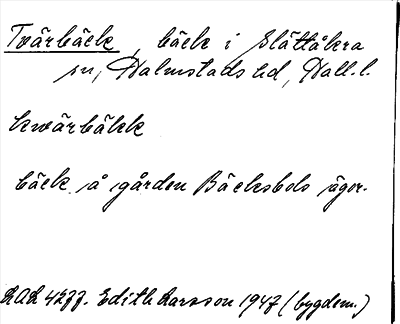 Tvärbäck, bäck i Slättåkra
sn, Halmstads hd, Hall. l.
kwärbäkk
bäck å gården Bäcksbols ägor.
LAL 4277. Edith Larsson 1947 (bygdem.)